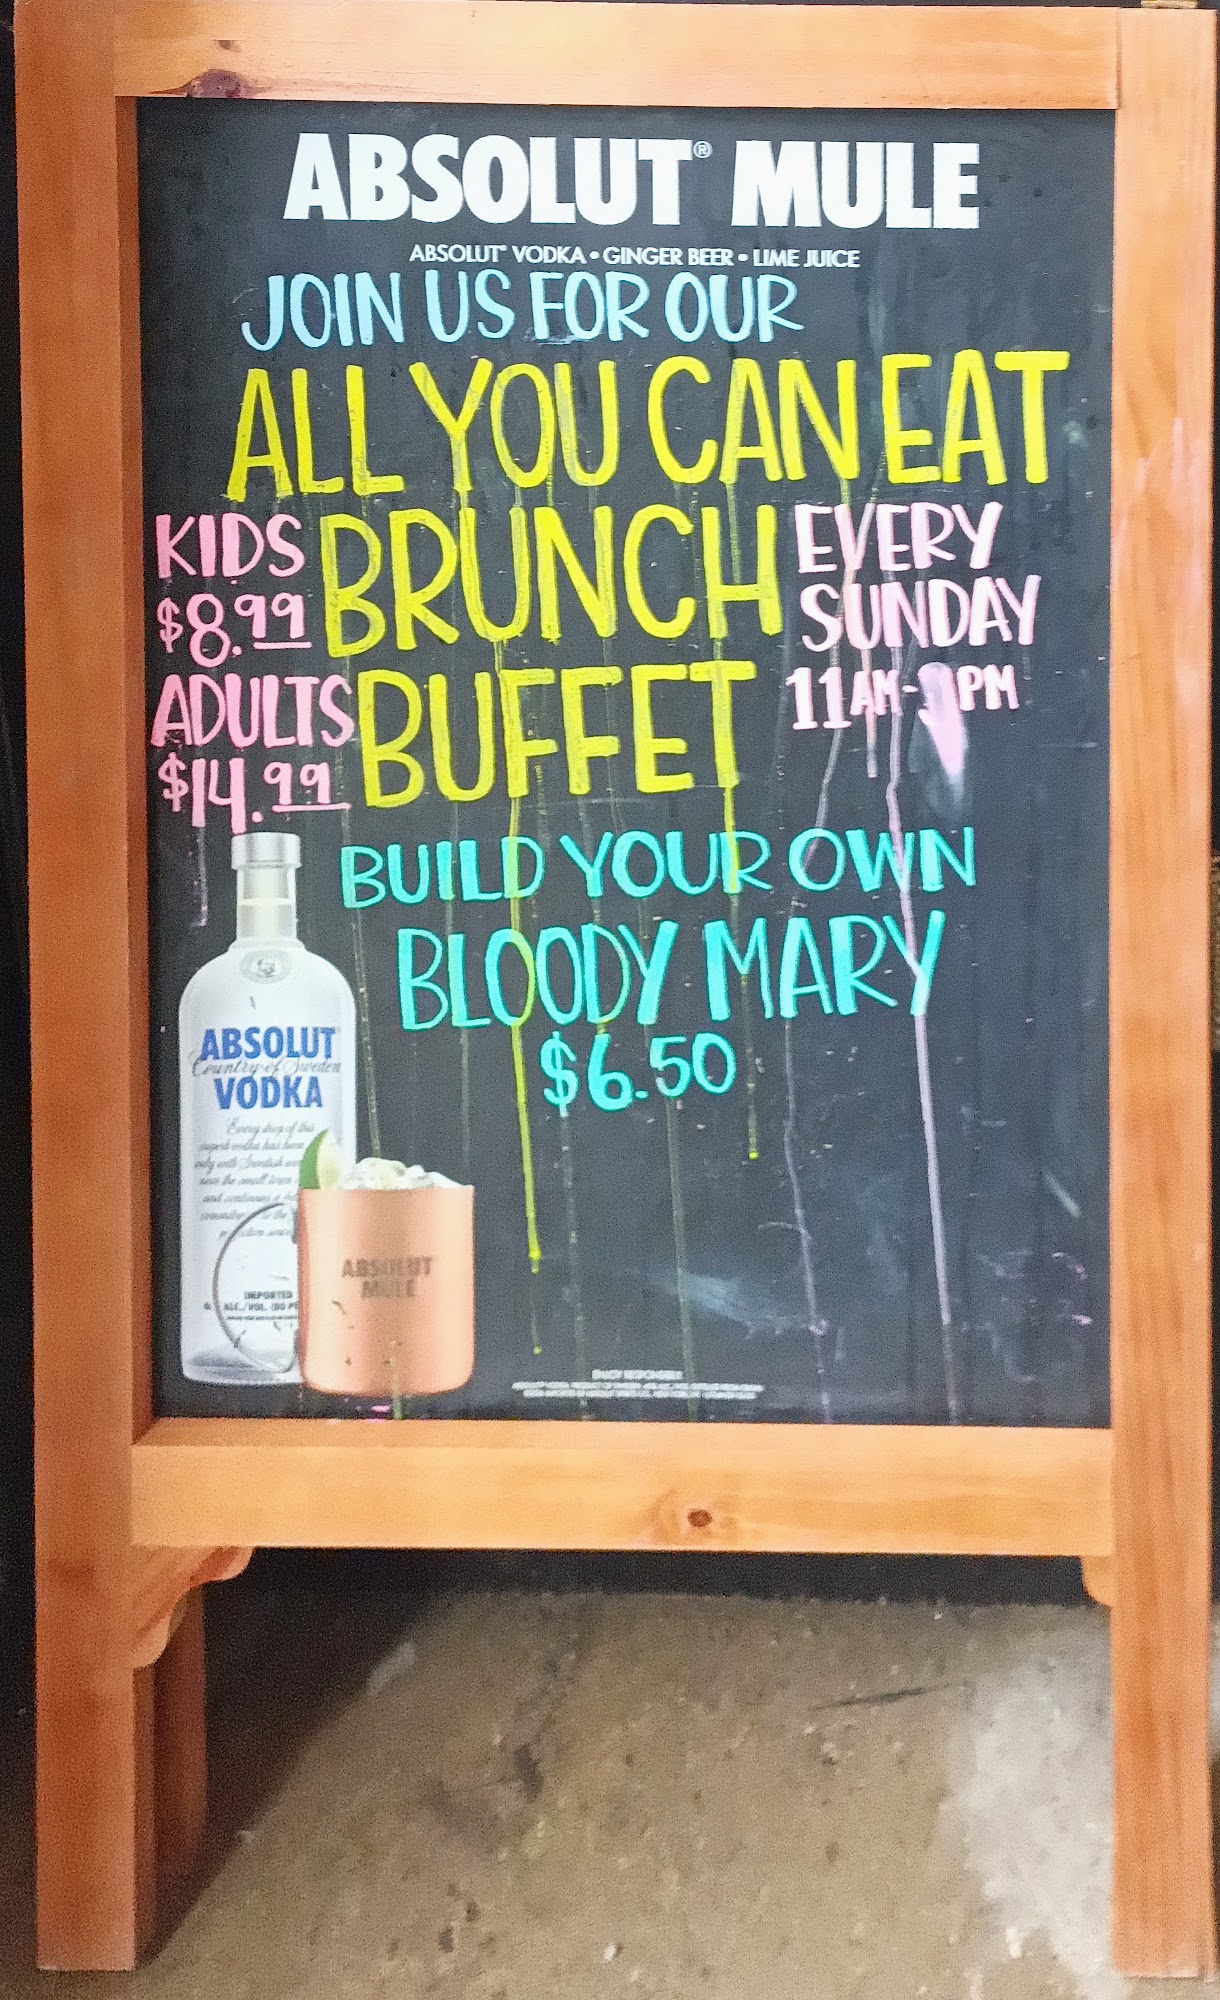 ABSOLUT® MULE
ABSOLUT® VODKA • GINGER BEER • LIME JUICE
JOIN US FOR OUR
ALL YOU CAN EAT
BRUNCH
BUFFET
KIDS
$8.99
ADULTS
$14.99
EVERY
SUNDAY
11AM- PM
BUILD YOUR OWN
BLOODY MARY
$6.50
ABSOLUT
Country of Sweden
VODKA
Every drop of this
IMPORTED
ABSOLUT
MULE
ENJOY RESPONSIBLY.